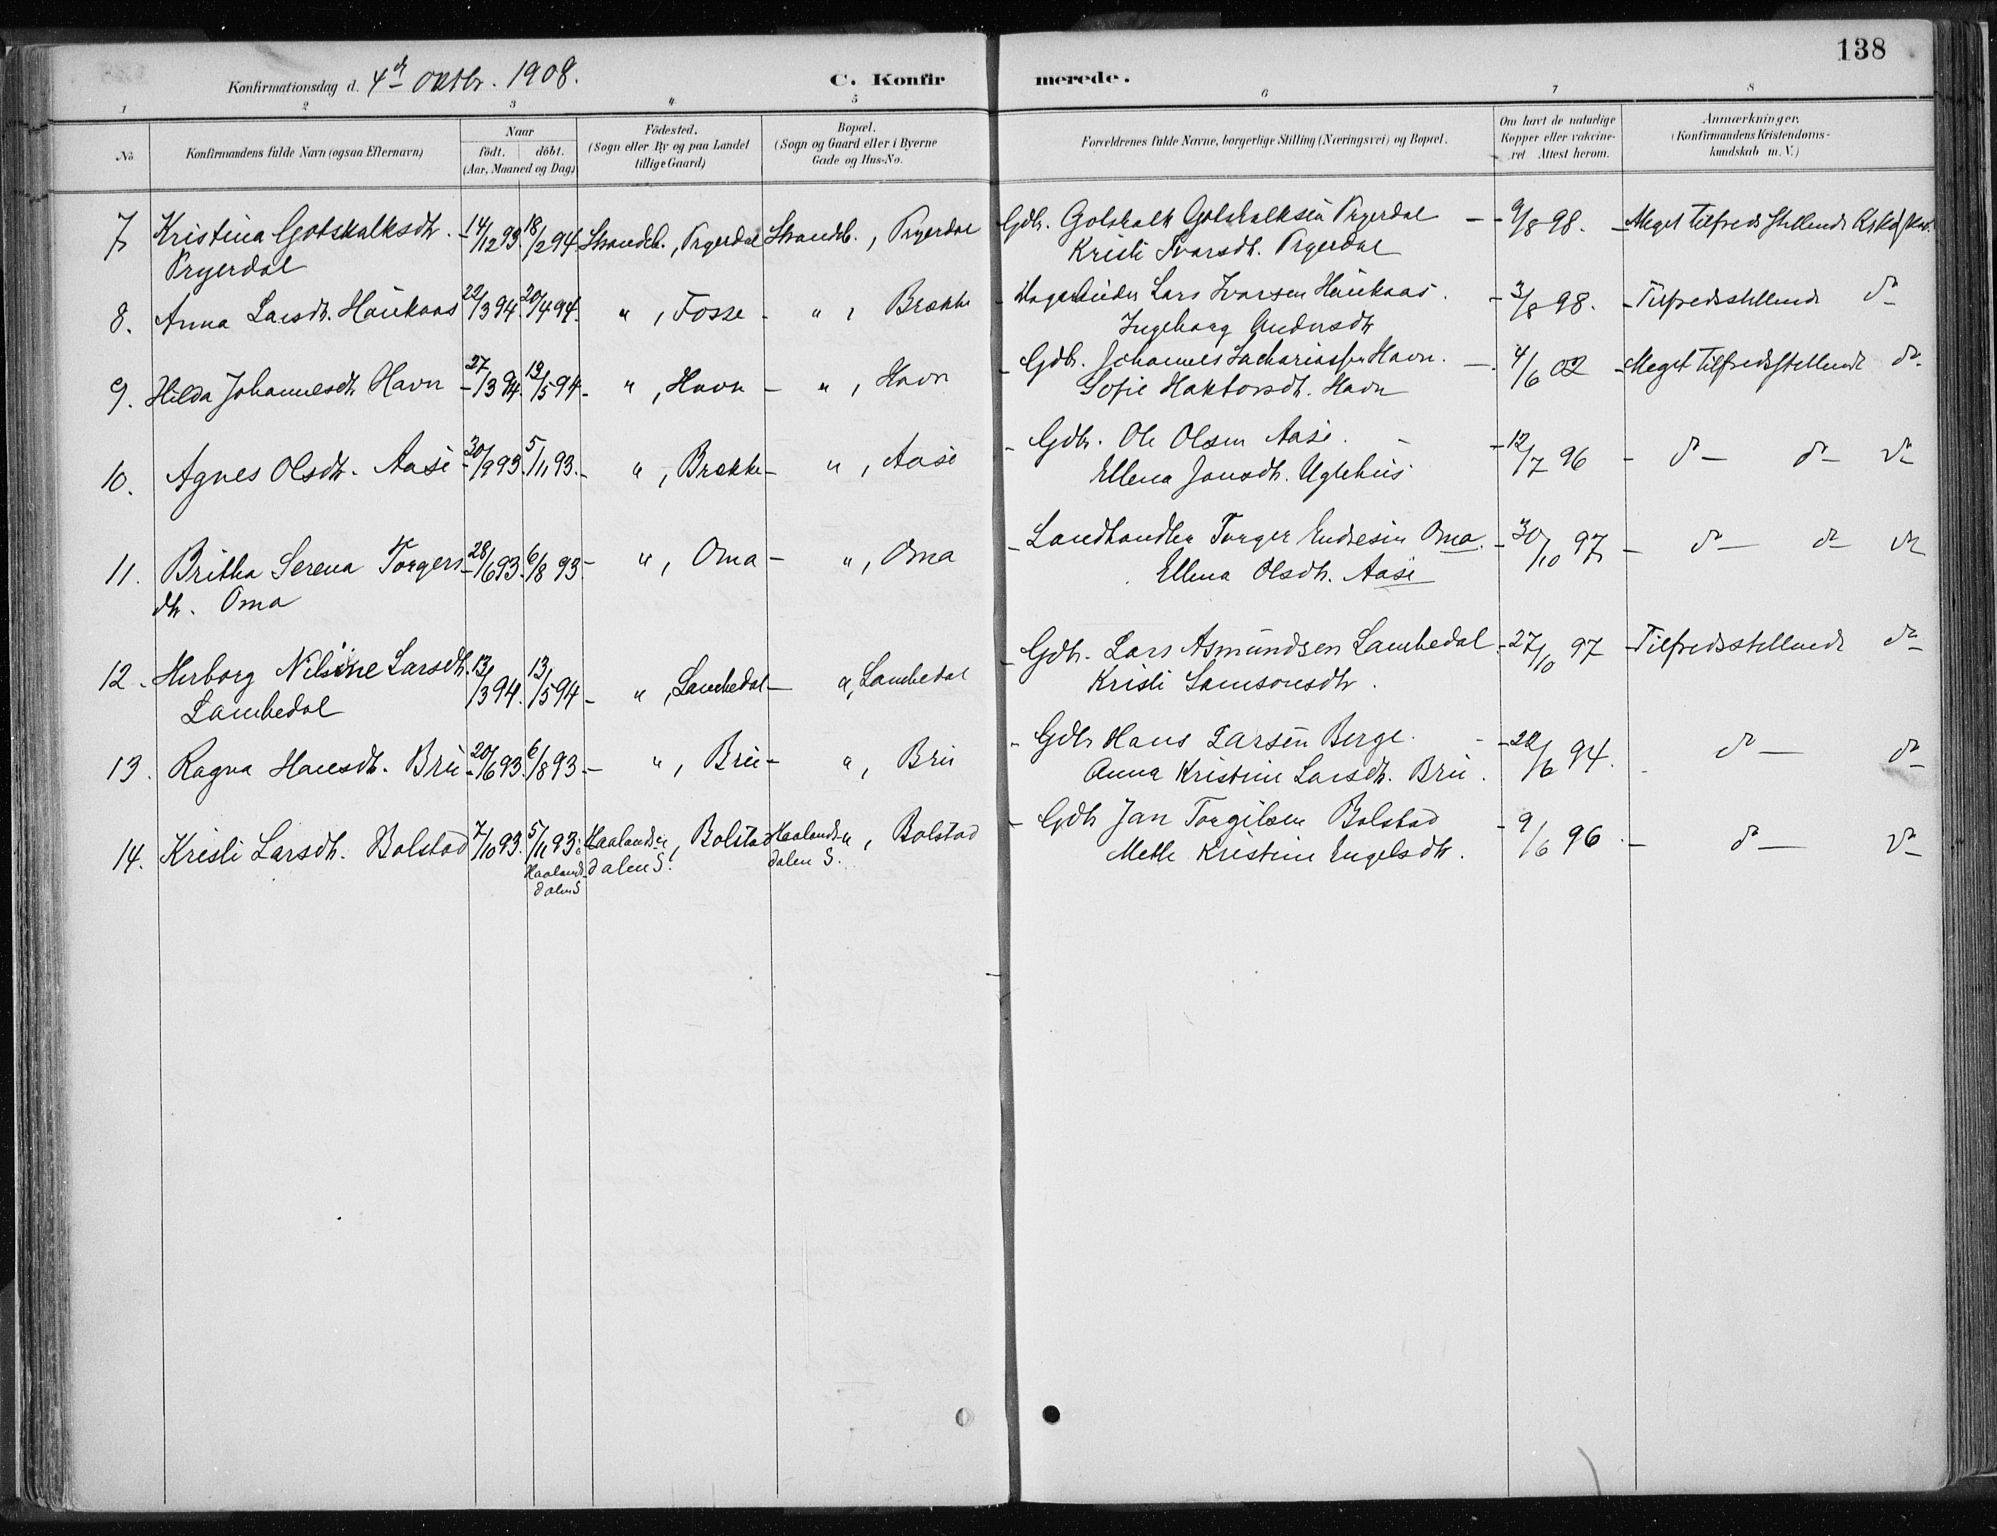 138
Konfirmationsdag d. 4de Oktbr. 1908.
C. Konfirmerede.
1 2 3 4 5 6 7 8
No.
Konfirmandens fulde Navn (ogsaa Efternavn)
Naar
födt. döbt.
(Aar, Maaned og Dag)
Födested.
(Sogn eller By og paa Landet
tillige Gaard)
Bopæl.
(Sogn og Gaard eller i Byerne
Gade og Hus-No.
Forældrenes fulde Navne, borgerlige Stilling (Næringsvei) og Bopæl.
Om havt de naturlige
Kopper eller vakcine-
ret Attest herom.
Anmærkninger.
(Konfirmandens Kristendoms-
kundskab m. V.)
7 Kristina Gotskalksdtr. 14/12 93. 18/2 94 Strandeb., Pryerdal Strandeb., Pryerdal Gdbr. Gotskalk Gotskalksen Pryerdal - 9/8 98. - Meget Tilfredsstillende
Pryerdal Kristi Ivarsdtr. Pryerdal
8. Anna Larsdtr. Haukaas 22/3 94. 20/4 94. " , Fosse - " , Brække Lars Ivarsen Haukaas. - 3/8 98. - Tilfredsstillende do
Ingeborg Andersdtr
9. Hilda Johannesdtr Havn 27/3 94. 13/5 94 - " , Havn - " , Havn - Gdbr. Johannes Zachariassen Havn. - 4/6 02 - Meget Tilfredsstillende do
Sofie Haktorsdtr. Havn
10. Agnes Olsdtr. Aase 30/9 93. 5/11 93. - " , Brække - " , Aase - Gdbr. Ole Olsen Aase. - 12/7 96 - do - do do
Ellena Jonsdtr. Uglehus
11. Britha Serena Torgers 28/6 93. 6/8 93 - " , Oma - " , Oma - Landhandler Torger Endresen Oma. - 30/10 97 - do - do do
dtr. Oma Ellena Olsdtr. Aase
12. Herborg Nilsine Larsdtr. 13/3 94. 13/5 94 - " , Lambedal - " , Lambedal - Gdbr. Lars Asmundsen Lambedal - 27/10 97 - Tilfredsstillende do
Lambedal Kristi Samsonsdtr.
13. Ragna Hansdtr. Bru 20/6 93. 6/8 93 - " , Bru - " , Bru - Gdbr Hans Larsen Berge. - /6 94. - do - do
Anna Kristine Larsdtr. Bru.
14. Kristi Larsdtr. Bolstad 7/10 93. 5/11 93. Haalands , Bolstad Haalands , Bolstad - Gdbr Jan Torgilsen Bolstad - 9/6 96. - do - do
Haalands- dalen S. dalen S. Mette Kristine Engelsdtr.
dalen S